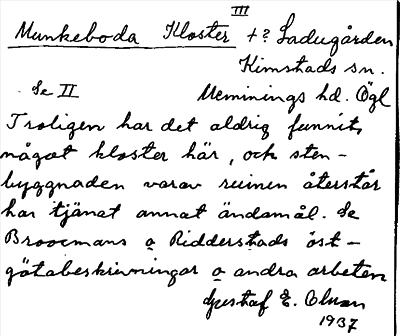 III
Munkeboda Kloster +? Ladugården
Kimstads sn.
Se II Memmings hd. Ögl
Troligen har det aldrig funnits
något kloster här, och sten-
byggnaden varav ruinen återstår
har tjänat annat ändamål. Se
Broocmans o Ridderstads öst-
götabeskrivningar o andra arbeten
Gustaf E.
1937